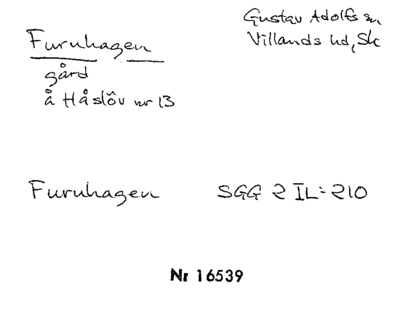 Furuhagen
gård
å Håslöv nr 13
Gustav Adolfs sn
Villands hd, Sk
Furuhagen SGG 2 IL:210
Nr 16539